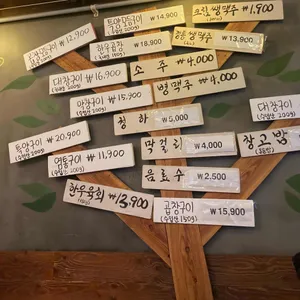 특양구이 ₩14,900
크림 생맥주 ₩1,900
₩12,900
한우곱창 ₩18,900
생맥주 ₩13,900
대창구이 ₩16,900
(수입산 200g)
소주 ₩4,000
병맥주 ₩4,000
막창구이 ₩15,900
(수입산 200g)
청하 ₩5,000
대창구이
특양구이 ₩20,900
막걸리 ₩4,000
염통구이 ₩11,900
음료수 ₩2,500
한우육회 ₩13,900
곱창구이 ₩15,900